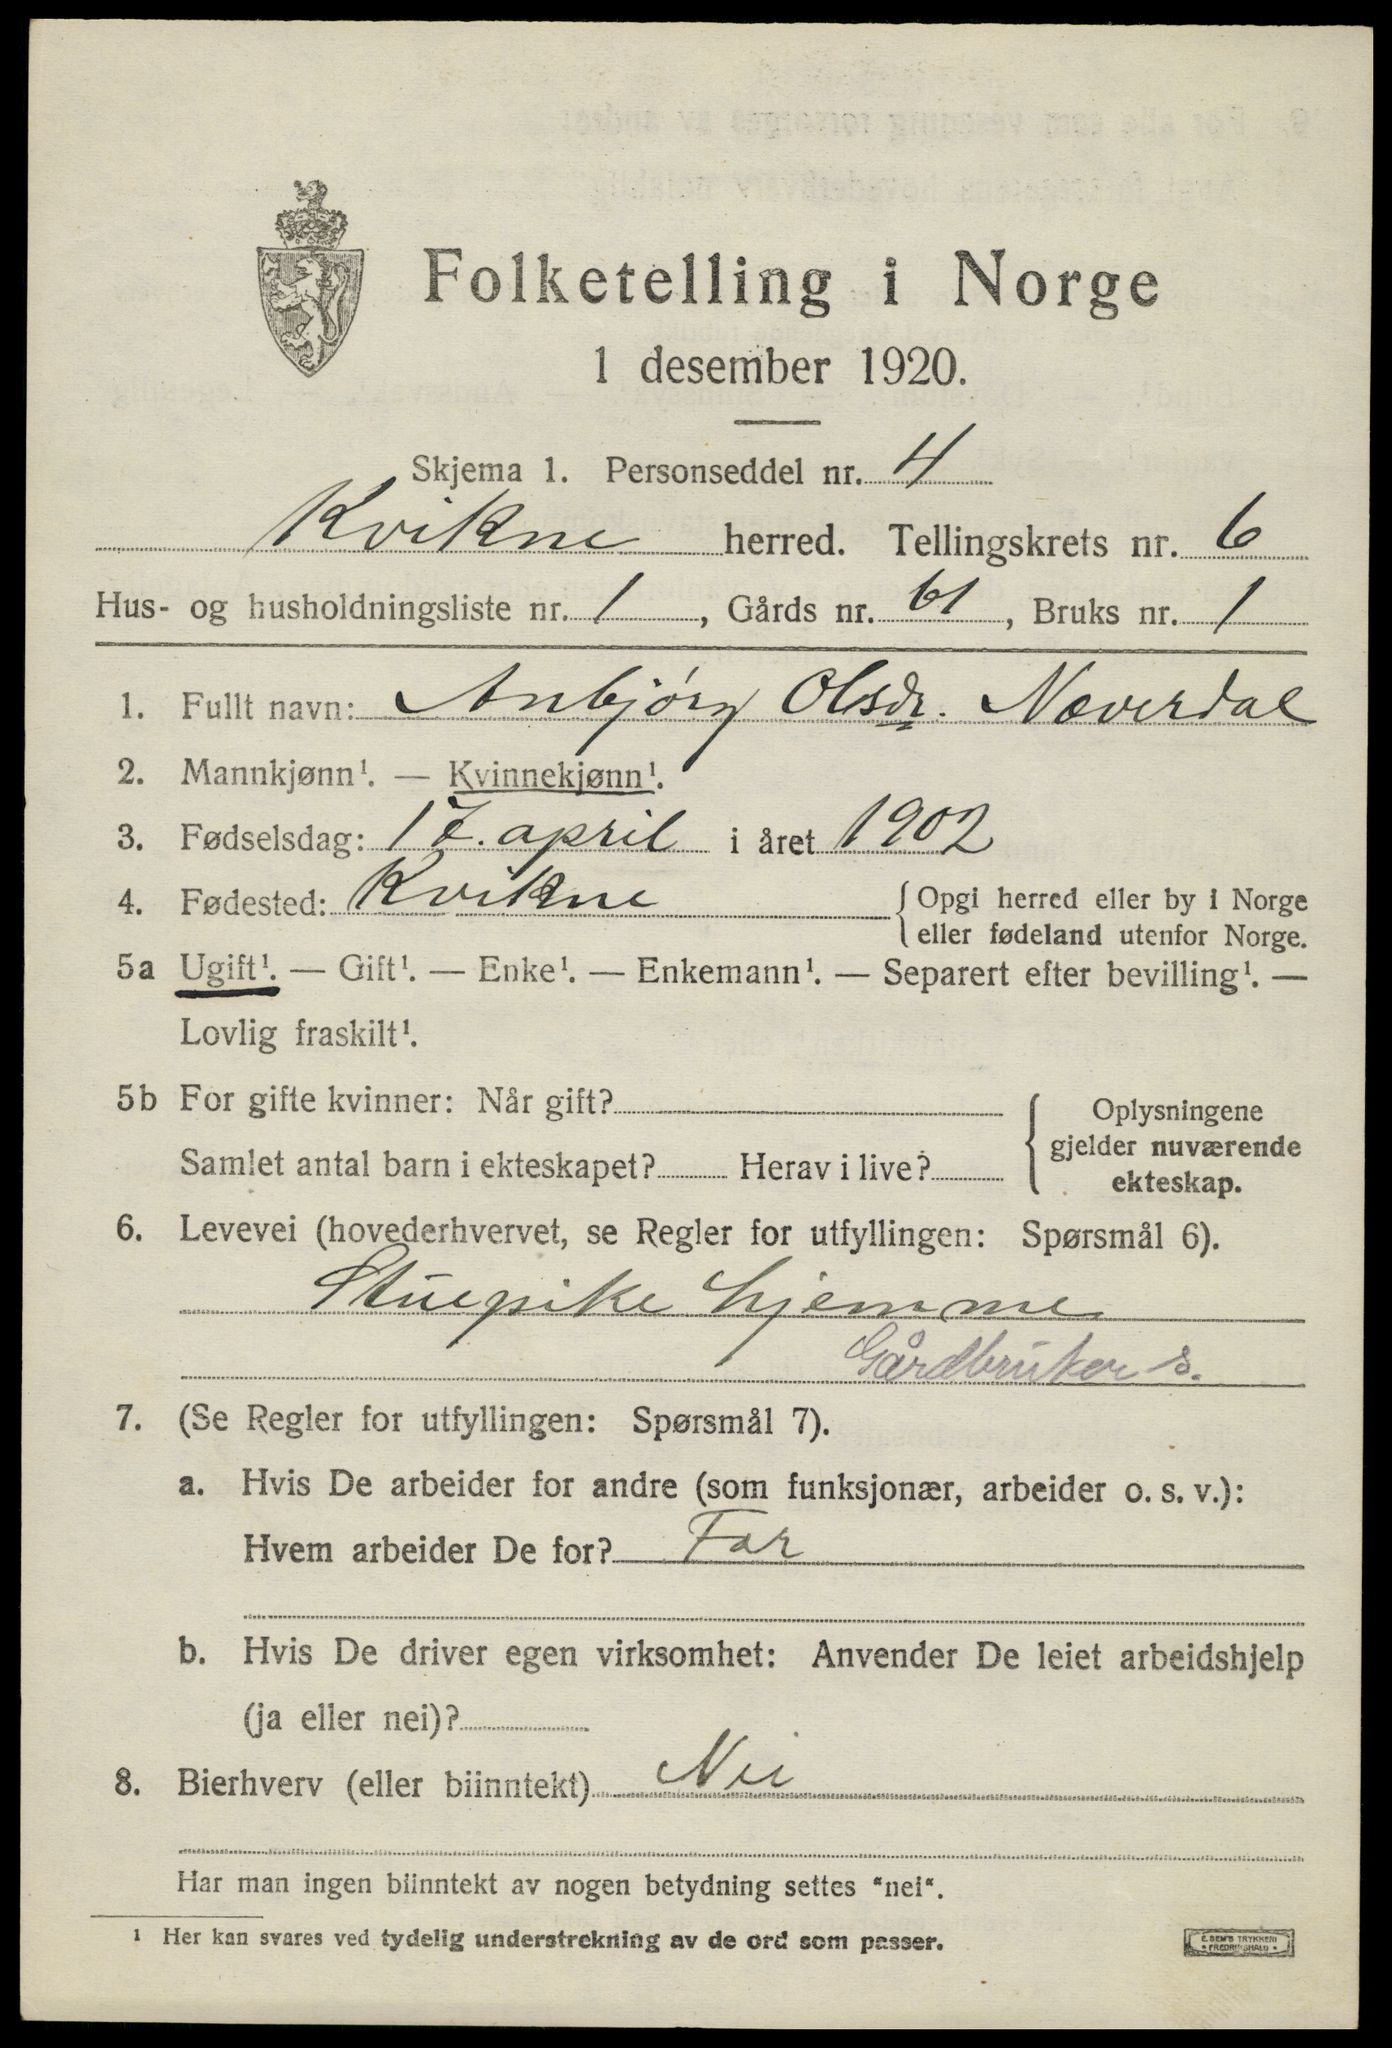 Folketelling i Norge
1 desember 1920.
Skjema 1. Personseddel nr. 4
Kvikne herred. Tellingskrets nr. 6
Hus- og husholdningsliste nr. 1, Gårds nr. 61, Bruks nr. 1
1. Fullt navn: Anbjørg Olsdr. Næverdal
2. Mannkjønn¹. — Kvinnekjønn¹.
3. Fødselsdag: 17. april i året 1902
4. Fødested: Kvikne { Opgi herred eller by i Norge
eller fødeland utenfor Norge.
5a Ugift¹. — Gift¹. — Enke¹. — Enkemann¹. — Separert efter bevilling¹. —
Lovlig fraskilt¹.
5b For gifte kvinner: Når gift?
Samlet antal barn i ekteskapet? Herav i live?
{ Oplysningene
gjelder nuværende
ekteskap.
6. Levevei (hovederhvervet, se Regler for utfyllingen: Spørsmål 6).
Stuepike hjemme
Gårdbruker s.
7. (Se Regler for utfyllingen: Spørsmål 7).
a. Hvis De arbeider for andre (som funksjonær, arbeider o. s. v.):
Hvem arbeider De for? Far
b. Hvis De driver egen virksomhet: Anvender De leiet arbeidshjelp
(ja eller nei)?
8. Bierhverv (eller biinntekt) Nei
Har man ingen biinntekt av nogen betydning settes "nei".
¹ Her kan svares ved tydelig understrekning av de ord som passer.
E. SEM'S TRYKKERI
* FREDRIKSHALD *